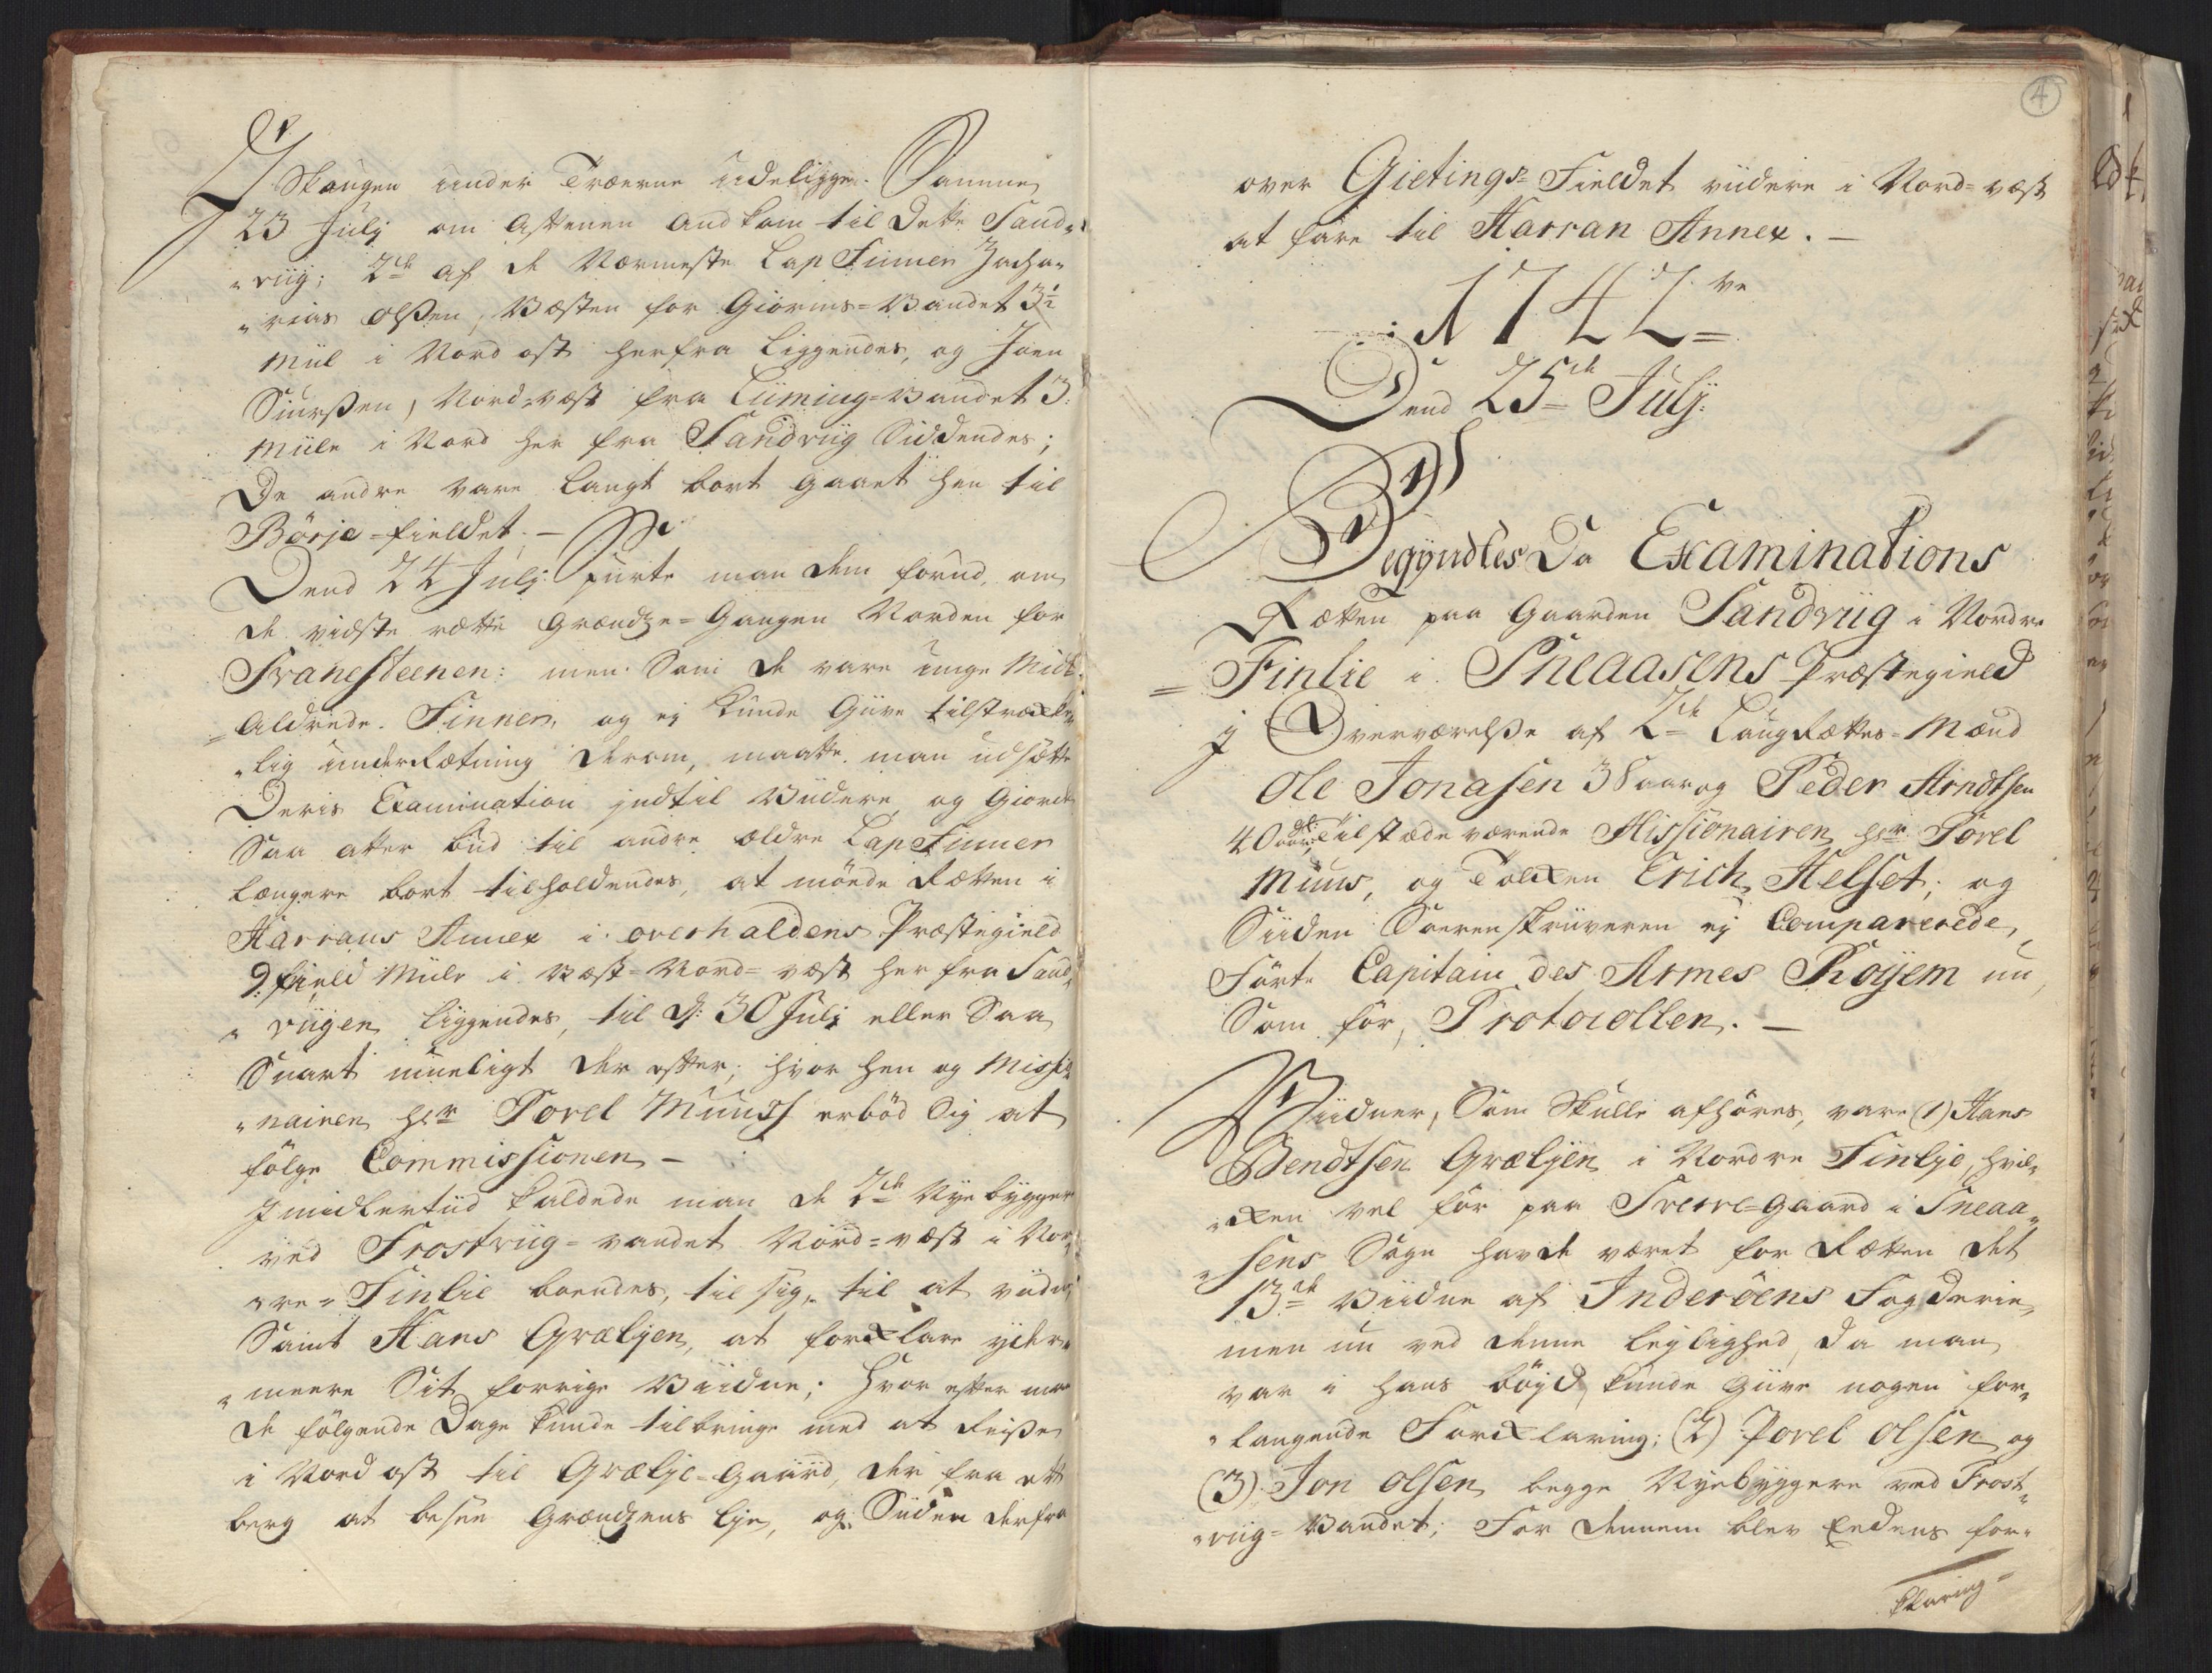 J Skougen under Træerne udeligge. Samme
23 July om Aftenen andkom til dette Sand„
„viig; 2de af de Nærmeste Lap Finner Zacha„
„rias Olßen, Væsten for Giorms=Vandet 3½
Miil i Nordost herfra liggendes, og Joen
Siurßen, Nord=væst fra Liiming=Vandet 3.
Miile i Nord her fra Sandviig Siddendes;
De andre vare langt bort gaaet hen til
Börje=fieldet. —
Dend 24 July: spurte man dem forud, om
de vidste rætte Grændtze=Gangen Norden for
Svanesteenen: men Som de vare unge Midt„
=Aldrede Finner, og ej kunde Giive tilstræcke„
„lig underRætning derom, maatte man udsætte
Deris Examination indtil Viidere, og Giorde
Saa atter bud til andre ældre Lap Finner
længere bort tilholdendes, at möede Rætten i
Harrans Annex i overhaldens Præstegield
9. field Miile i Væst=Nord=væst her fra Sand„
„viigen liggendes, til d: 30 July eller Saa
Snart mueligt der efter; hvor hen og Missio
„nairen hr Povel Muus erböd Sig at
fölge Commissionen —
Jmidlertiid kaldede man de 2de Nye bygger
ved Frostviig=vandet Nord=væst i Nor„
„re=Finlie boendes, til sig, til at viidne,
Samt Hans Græljen, at forklare yder„
„meere Sit forrige Viidne; hvor efter man
de fölgende Dage kunde tilbringe med at Reiße
i Nordost til Grælje=Gaard, der fra ett
berg at besee Grændtzens lje, og Siden derfra
4
over Gietings=Fieldet viidere i Nord=væst
at fare til Harran Annex. —
1742ve
Dend 25de July:
Begyndtes Da Examinations
Rætten paa Gaarden Sandviig i Nordre
=Finlie i Sneaasens Præstegield
j Overværelße af 2de LaugRættes=Mænd
Ole Jonasen 38 aar og Peder Arndtsen
40 aar: Tilstæde værende Missionairen hr Povel
Muus, og Tolken Erich Helset; og
Siiden Sorenskriiveren ej Comparerede,
Förte Capitain des Armes Röyem nu,
Som för, Protocollen. —
Viidner, Som Skulle afhöres, vare (1) Hans
Bendtsen Græljen i Nordre Finlje, hvil„
„ken vel för paa Sverre=gaard i Sneaa„
„sens Sogn havde været for Rætten det
13de Viidne af Inderöens Fogderie,
men nu ved denne leylighed, da man
var i hans böyd, kunde Giive nogen for„
„langende Forklaring; (2) Povel Olsen og
(3) Jon Olsen begge Nyebyggere ved Frost„
„viig=Vandet; For dennem blev Eedens for„
klaring=